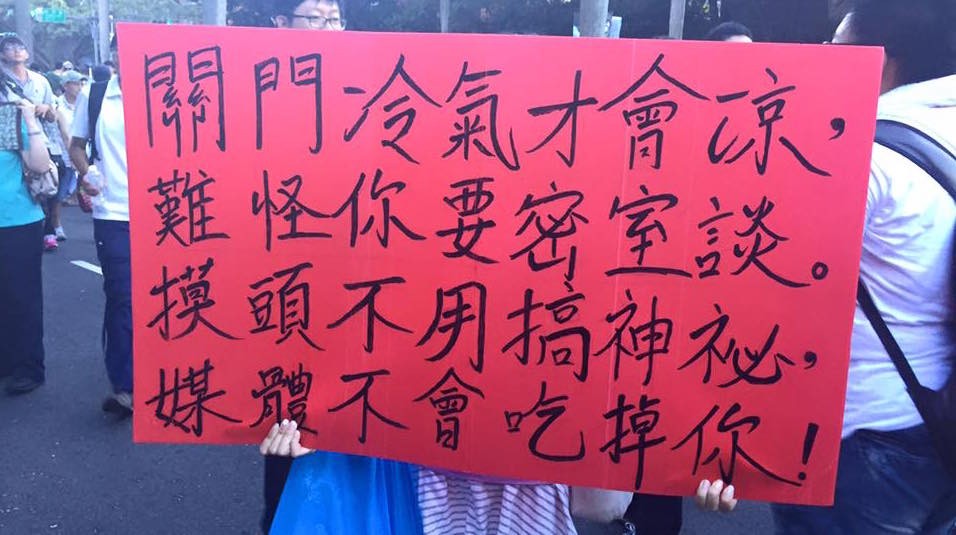 關門冷氣才會涼，
難怪你要密室談。
摸頭不用搞神祕，
媒體不會吃掉你！